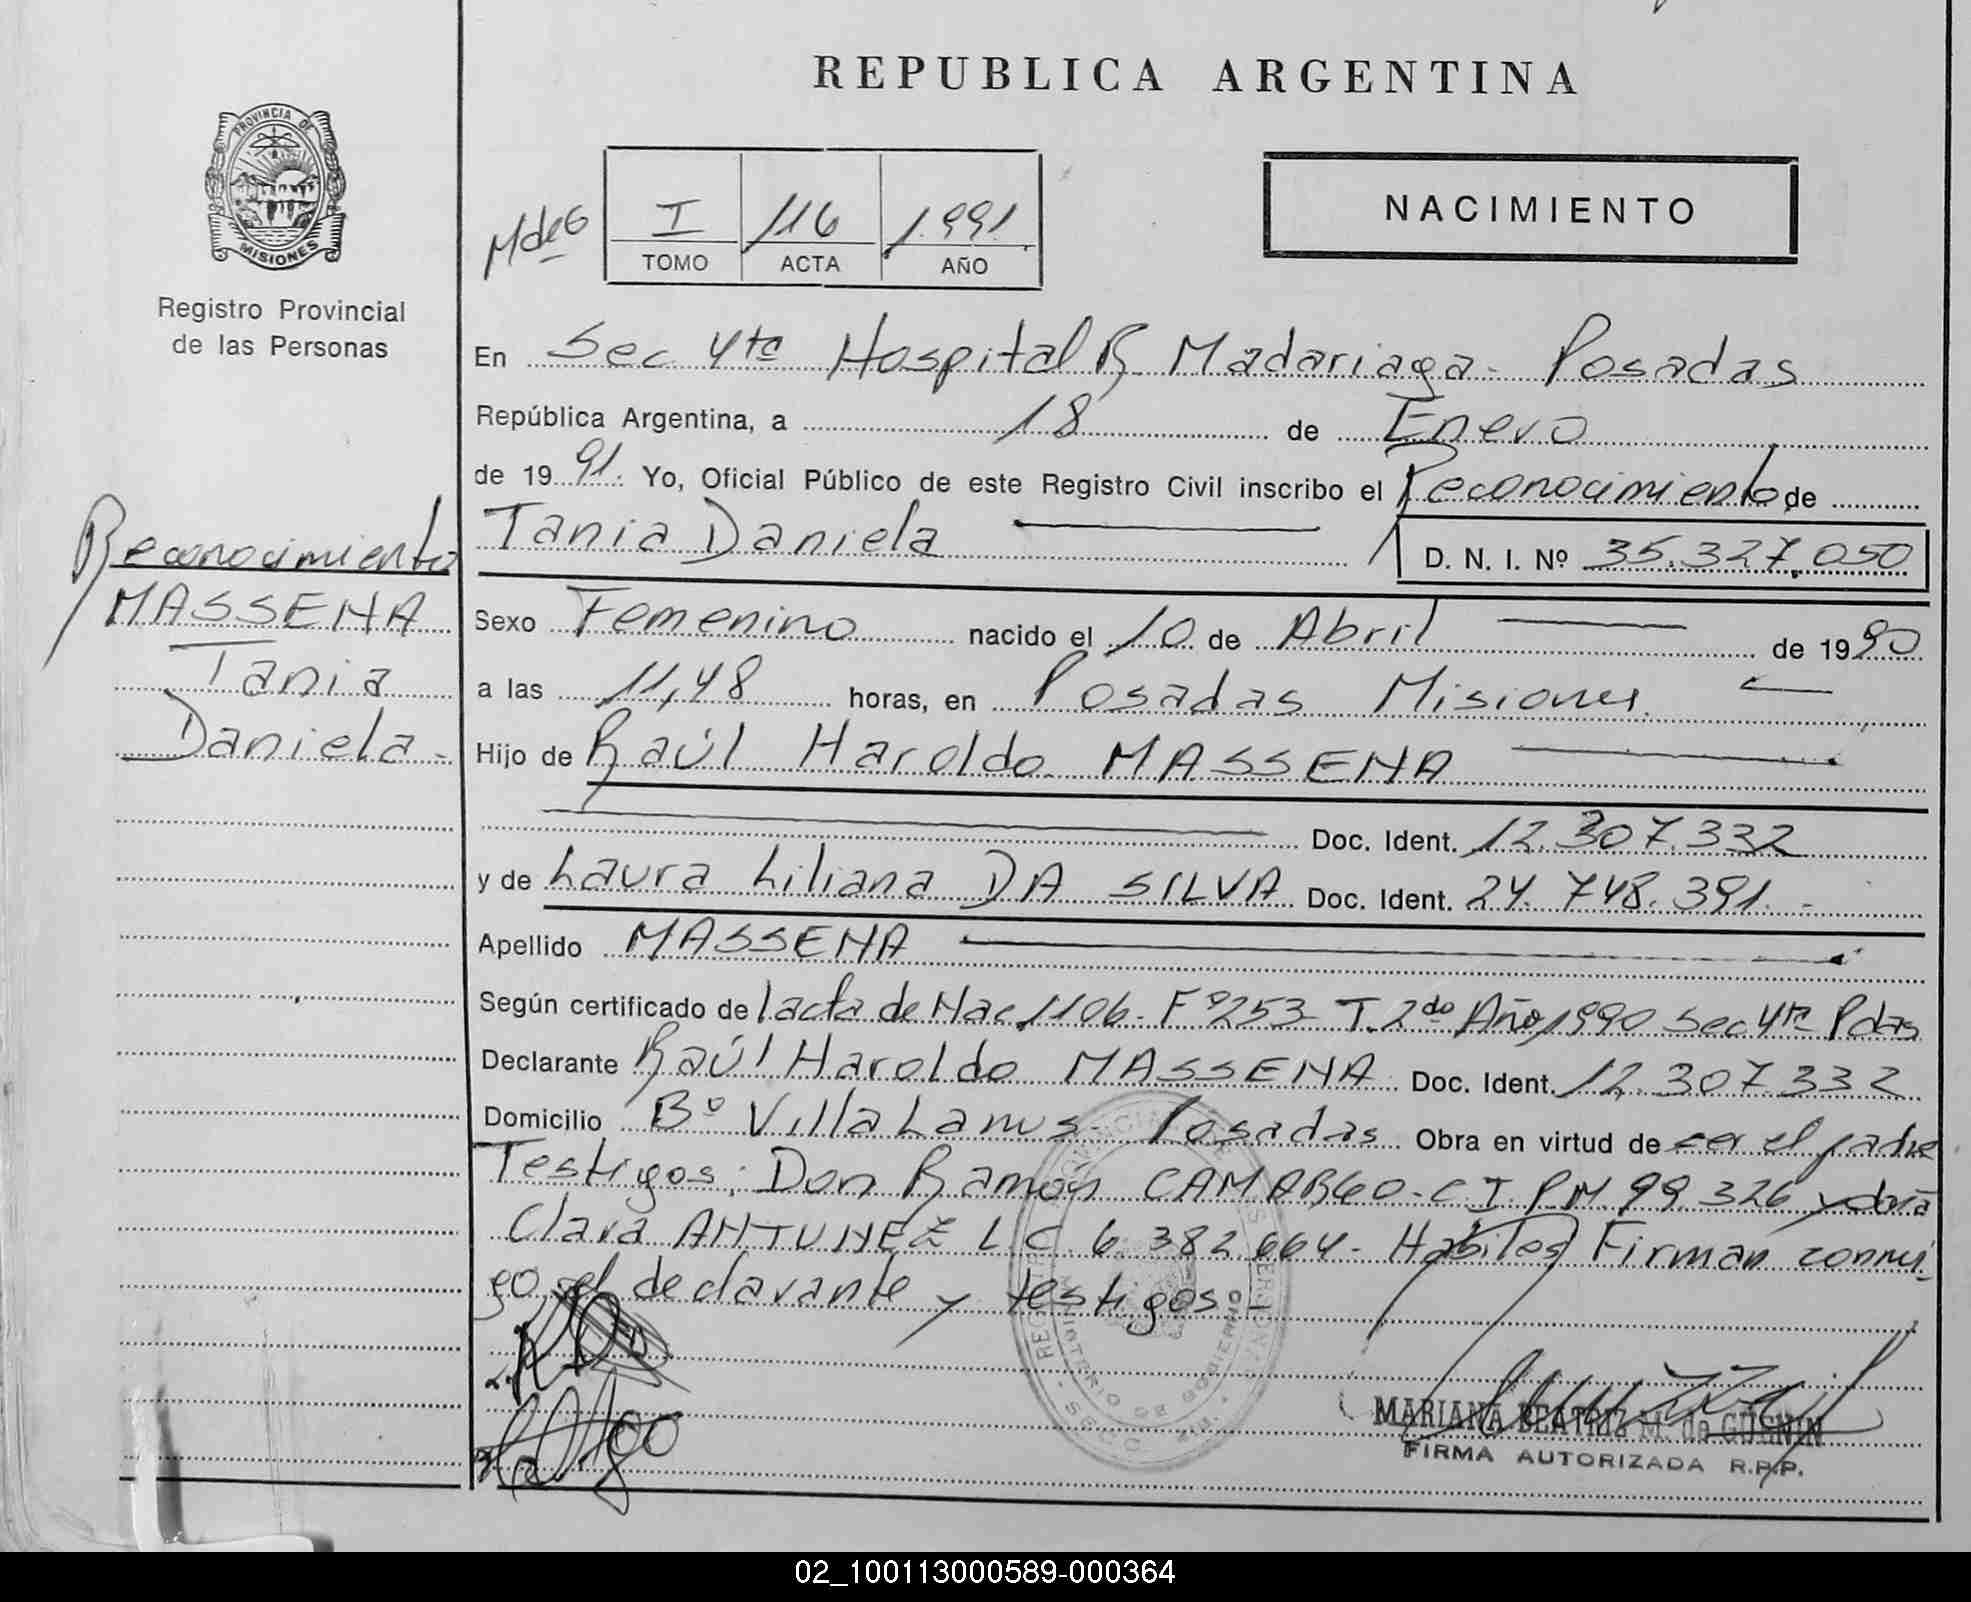 REPUBLICA ARGENTINA
PROVINCIA DE
MISIONES
Registro Provincial
de las Personas
I 116 1991
TOMO ACTA AÑO
NACIMIENTO
En Sec 4ta Hospital R Madariaga - Posadas
República Argentina, a 18 de Enero
de 1991. Yo, Oficial Público de este Registro Civil inscribo el Reconocimiento de
Tania Daniela
D. N. I. Nº 35.327.050
Reconocimiento
MASSENA
Tania
Daniela -
Sexo Femenino nacido el 10 de Abril de 1990
a las 11,48 horas, en Posadas Misiones
Hijo de Raúl Haroldo MASSENA
Doc. Ident. 12.307.332
y de Laura Liliana DA SILVA Doc. Ident. 24.748.391.-
Apellido MASSENA
Según certificado de acta de Nac 1106 - Fº 253 - T. 2do Año 1990 Sec 4ta Pdas
Declarante Raúl Haroldo MASSENA Doc. Ident. 12.307.332
Domicilio Bº Villa Lanus - Posadas Obra en virtud de ser el padre
Testigos: Don Ramón CAMARGO - C I. P.M. 99.326 y doña
Clara ANTUNEZ L.C. 6.382.664 - Habiles Firman conmi-
go el declarante y testigos -
MARIANA BEATRIZ M. de GUGNIN
FIRMA AUTORIZADA R.P.P.
02_100113000589-000364